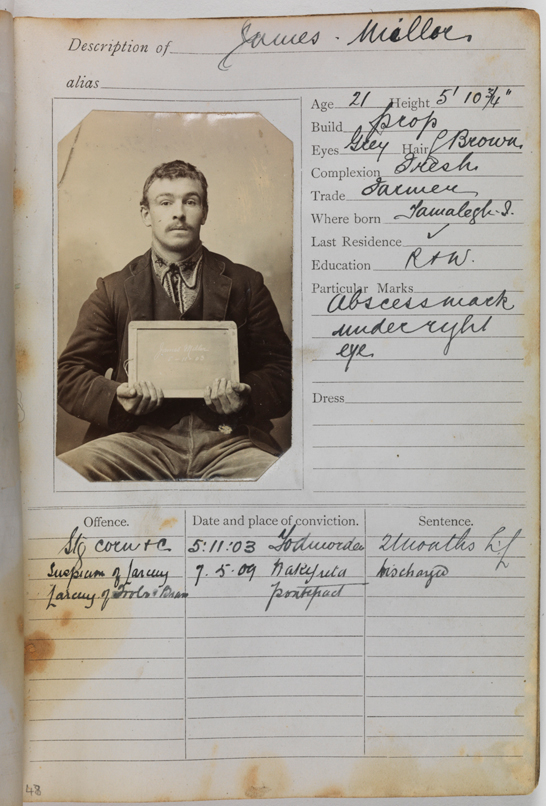 Description of James Mellor
alias
Age 21 Height 5' 10 3/4"
Build prop
Eyes Grey Hair L Brown
Complexion Fresh
Trade Farmer
Where born
Last Residence ✓
Education R & W.
Particular Marks
Abscess mark
under right
eye
Dress
Offence. Date and place of conviction. Sentence.
Stg corn &c 5:11:03 Todmorden 2 months
Suspicion of Larceny 7.5.09 Wakefield Discharged
Larceny of Tools & Pontefract
48